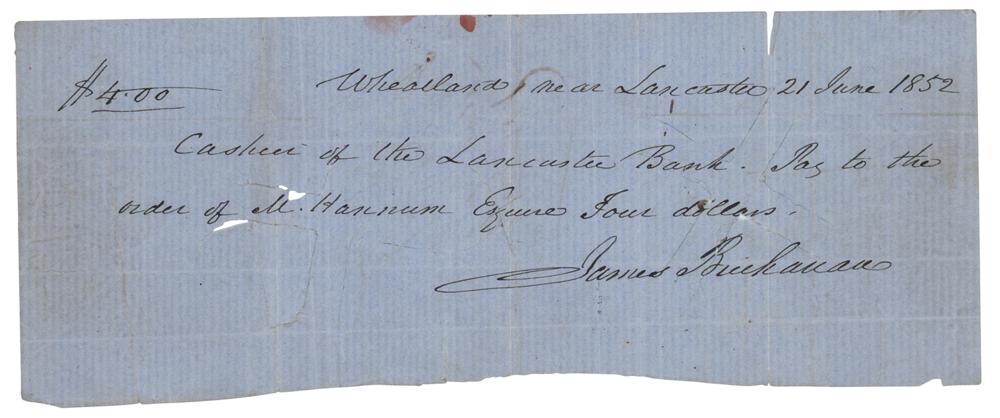 $4.00 Wheatland, near Lancaster 21 June 1852
Cashier of the Lancaster Bank. Pay to the
order of M. Hannum Esquire Four dollars.
James Buchanan